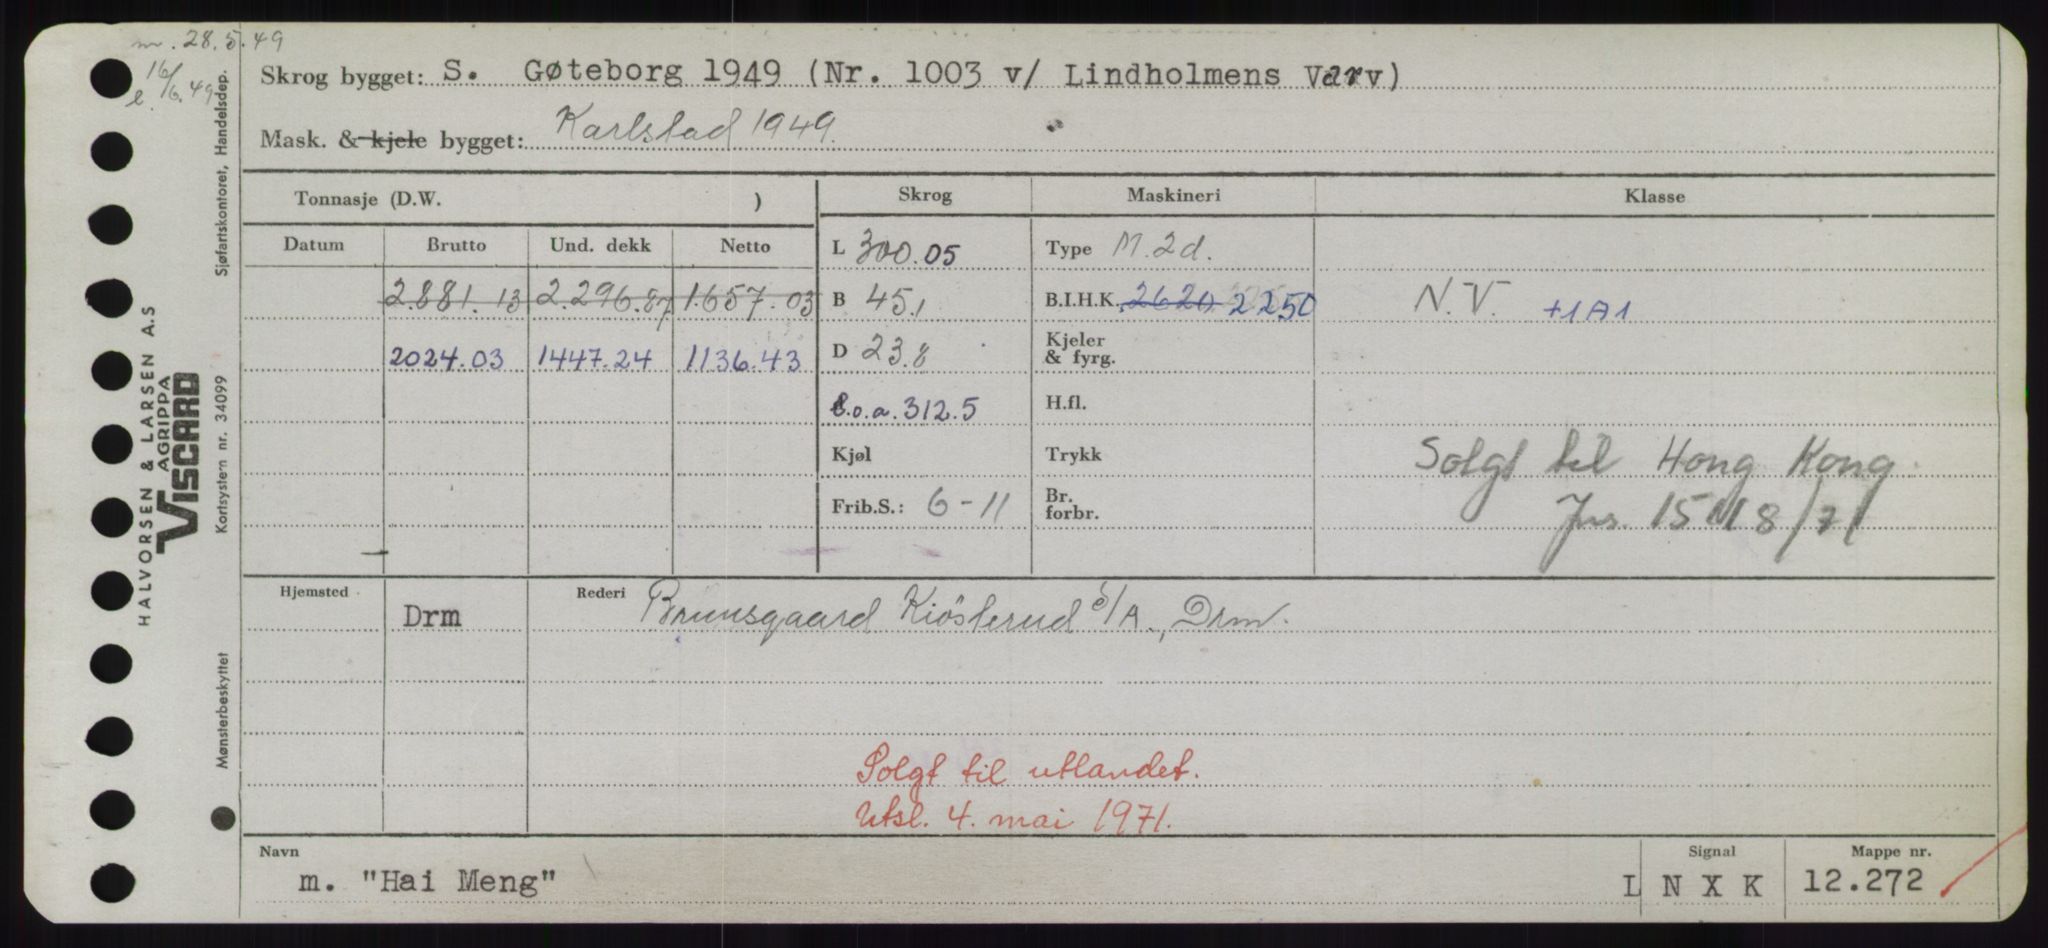 m. 28.5.49
16/6.49
Skrog bygget: S. Gøteborg 1949 (Nr. 1003 v/ Lindholmens Varv)
Mask. & kjele bygget: Karlstad 1949.
Tonnasje (D.W. )
Skrog Maskineri Klasse
Datum Brutto Und. dekk Netto
L 300.05 Type M. 2d.
2.881.13 2.296.87 1.657.03 B 45,1 B.I.H.K. 2620 2250 N.V. +1A1
2024.03 1447.24 1136.43 D 23.8 Kjeler & fyrg.
l.o.a. 312.5 H.fl.
Kjøl Trykk Solgt til Hong Kong
Frib.S.: 6-11 Br. forbr. 8/71
Hjemsted Drm Rederi Bruusgaard Kiøsterud S/A., Drm.
Solgt til utlandet.
Utsl. 4. mai 1971.
Navn Signal Mappe nr.
m. "Hai Meng" L N X K 12.272
Sjøfartskontoret, Handelsdep.
HALVORSEN & LARSEN A.S
AGRIPPA
VISCARD
Kortsystem nr. 34099
Mønsterbeskyttet